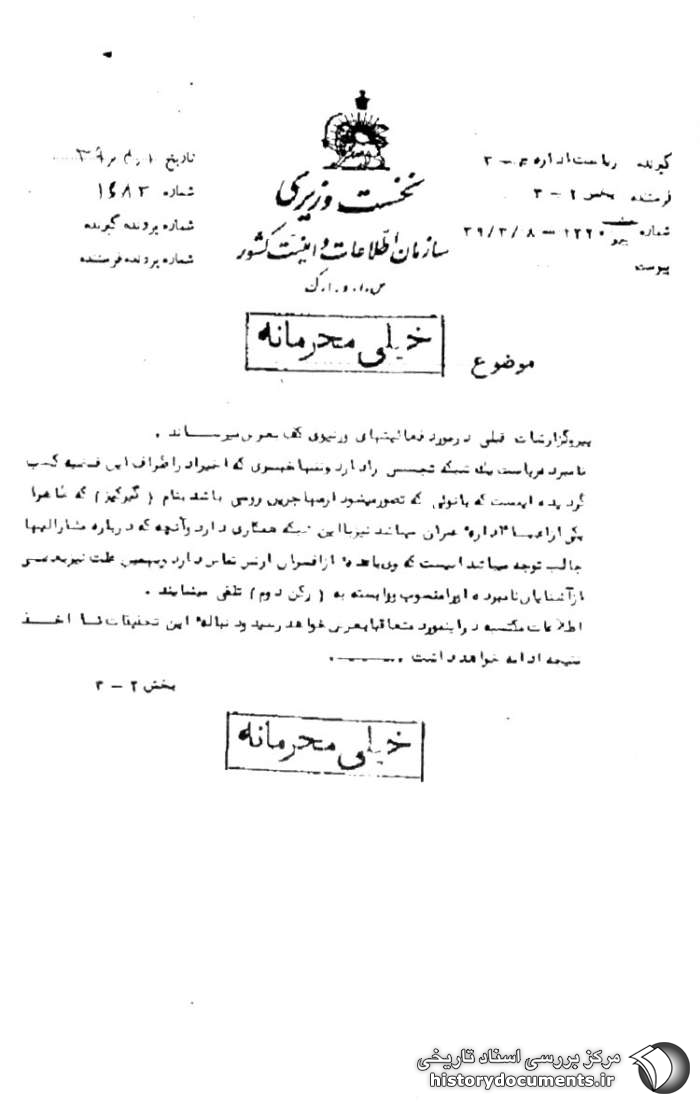 گیرنده ریاست اداره ۳
فرستنده بخش ۲ – ۳
شماره ۱۲۲۰ – ۳۹/۳/۸
پیوست
نخست وزیری
سازمان اطلاعات و امنیت کشور
س.ا.و.ا.ک
تاریخ
شماره ۱۶۸۲
شماره پرونده گیرنده
شماره پرونده فرستنده
خیلی محرمانه
موضوع
پیرو گزارشات قبلی درمورد فعالیتهای معروض میرساند .
نامبرده ریاست یک شبکه تجسس را دارد و که اخیرا در اطراف این قضیه کسب
گردیده اینست که بانوئی که تصور میشود ازمهاجرین روسی باشد بنام ( ) که ظاهرا
یکی از اعضا اداره عمران میباشد نیز با این شبکه همکاری دارد وآنچه که درباره مشارالیها
جالب توجه میباشد اینست که وی با عده ای از افسران ارتش تماس دارد وبهمین علت نیز بعضی
از آشنایان نامبرده اورا منصوب و وابسته به ( رکن دوم ) تلقی مینمایند .
اطلاعات مکتسبه دراینمورد متعاقبا بعرض خواهد رسید ودنباله این تحقیقات تا اخذ
نتیجه ادامه خواهد داشت
بخش ۲ – ۳
خیلی محرمانه
مرکز بررسی اسناد تاریخی
historydocuments.ir